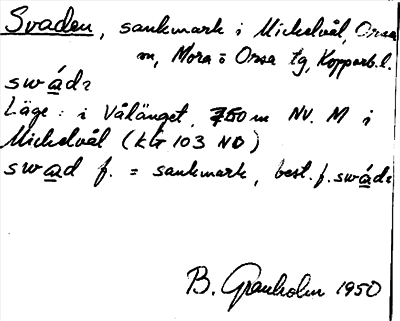 Svaden, sankmark i Mickelvål, Orsa
m, Mora o Orsa tg, Kopparb. l.
swád
Läge: i Vålänget, 750 m NV. M i
Mickelvål (KG 103 NO)
swad f. = sankmark, best. f. swád
B. Granholm 1950